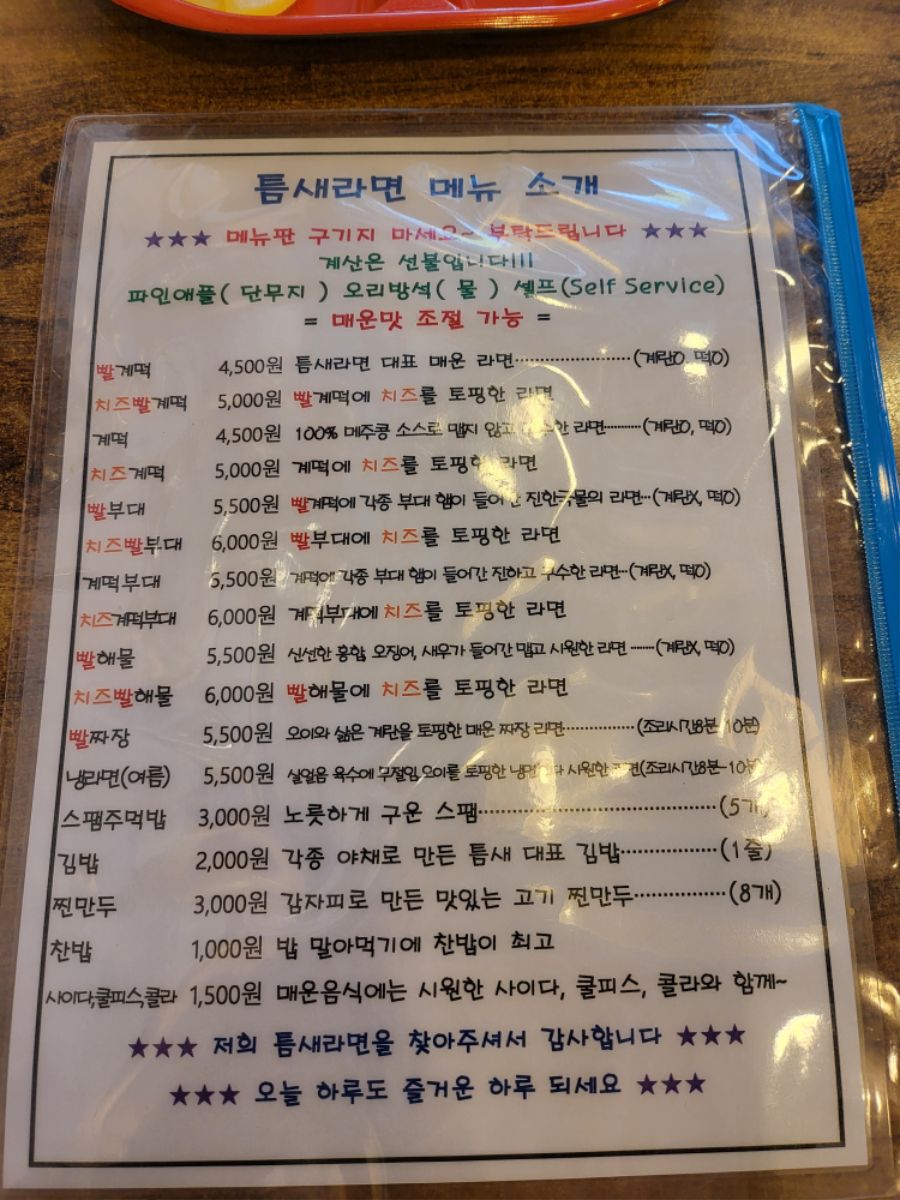 틈새라면 메뉴 소개
★★★ 메뉴판 구기지 마세요~ 부탁드립니다 ★★★
계산은 선불입니다!!!
파인애플( 단무지 ) 오리방석( 물 ) 셀프(Self Service)
= 매운맛 조절 가능 =
빨계떡 4,500원 틈새라면 대표 매운 라면······················(계란O, 떡O)
치즈빨계떡 5,000원 빨계떡에 치즈를 토핑한 라면
계떡 4,500원 100% 메주콩 소스로 맵지 않고 라면··········(계란O, 떡O)
치즈계떡 5,000원 계떡에 치즈를 토핑한 라면
빨부대 5,500원 빨계떡에 각종 부대 햄이 들어간 진한국물의 라면···(계란X, 떡O)
치즈빨부대 6,000원 빨부대에 치즈를 토핑한 라면
계떡부대 5,500원 계떡에 각종 부대 햄이 들어간 진하고 구수한 라면···(계란X, 떡O)
치즈계떡부대 6,000원 계떡부대에 치즈를 토핑한 라면
빨해물 5,500원 신선한 홍합, 오징어, 새우가 들어간 맵고 시원한 라면 ·······(계란X, 떡O)
치즈빨해물 6,000원 빨해물에 치즈를 토핑한 라면
빨짜장 5,500원 오이와 삶은 계란을 토핑한 매운 짜장 라면··············(조리시간8분~10분)
냉라면(여름) 5,500원 살얼음 육수에 무절임,오이를 토핑한 시원한 라면(조리시간8분~10분)
스팸주먹밥 3,000원 노릇하게 구운 스팸·······································(5개)
김밥 2,000원 각종 야채로 만든 틈새 대표 김밥················(1줄)
찐만두 3,000원 감자피로 만든 맛있는 고기 찐만두···············(8개)
찬밥 1,000원 밥 말아먹기에 찬밥이 최고
사이다,쿨피스,콜라 1,500원 매운음식에는 시원한 사이다, 쿨피스, 콜라와 함께~
★★★ 저희 틈새라면을 찾아주셔서 감사합니다 ★★★
★★★ 오늘 하루도 즐거운 하루 되세요 ★★★